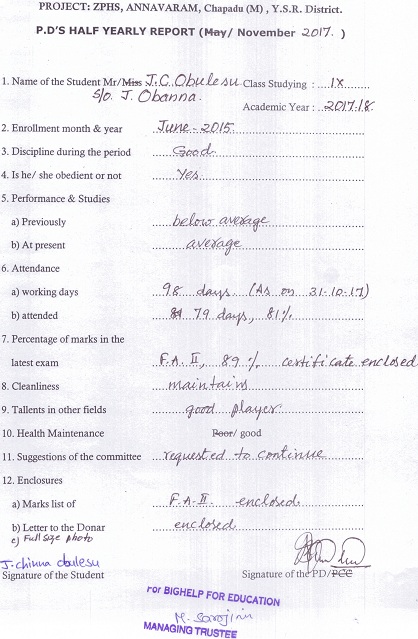 PROJECT: ZPHS, ANNAVARAM, Chapadu (M) , Y.S.R. District.
P.D'S HALF YEARLY REPORT (May/ November 2017. )
1. Name of the Student Mr/Miss J.C. Obulesu Class Studying : IX
S/o. J. Obanna. Academic Year : 2017.18
2. Enrollment month & year June - 2015.
3. Discipline during the period Good.
4. Is he/ she obedient or not Yes.
5. Performance & Studies
a) Previously below average
b) At present average
6. Attendance
a) working days 98 days. (As on 31-10-17)
b) attended 79 days, 81%
7. Percentage of marks in the
latest exam F.A. II, 89 %. certificate enclosed
8. Cleanliness maintains
9. Tallents in other fields good player.
10. Health Maintenance Poor/ good
11. Suggestions of the committee requested to continue
12. Enclosures
a) Marks list of F.A-II. enclosed
b) Letter to the Donar enclosed
c) Full size photo
J. chinna obulesu
Signature of the Student Signature of the PD/PCC
For BIGHELP FOR EDUCATION
M. Sarojini
MANAGING TRUSTEE